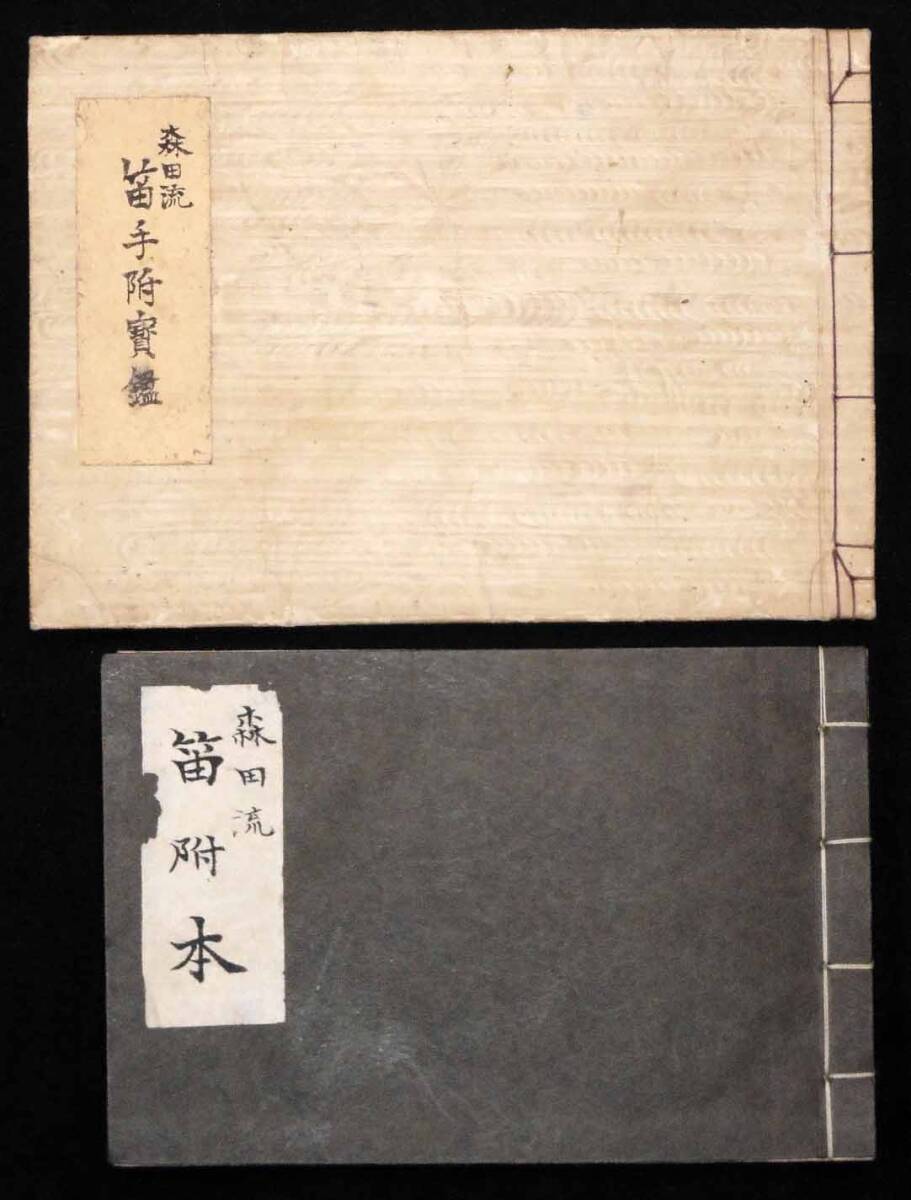 森田流
笛手附寳鑑
森田流
笛附本